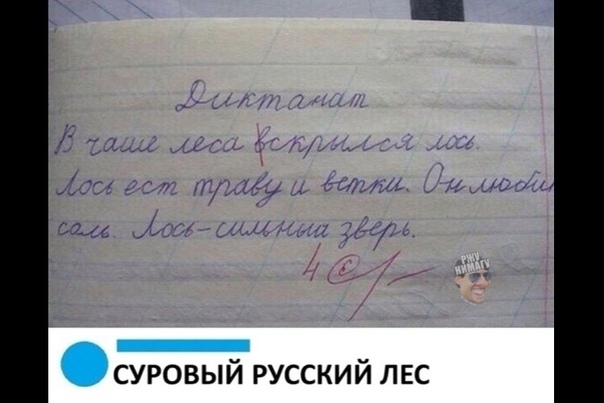 Диктанат
В чаше леса вскрылся лось.
Лось ест траву и ветки. Он любит
соль. Лось-сильный зверь.
4
РЖУ
НИМАГУ
СУРОВЫЙ РУССКИЙ ЛЕС